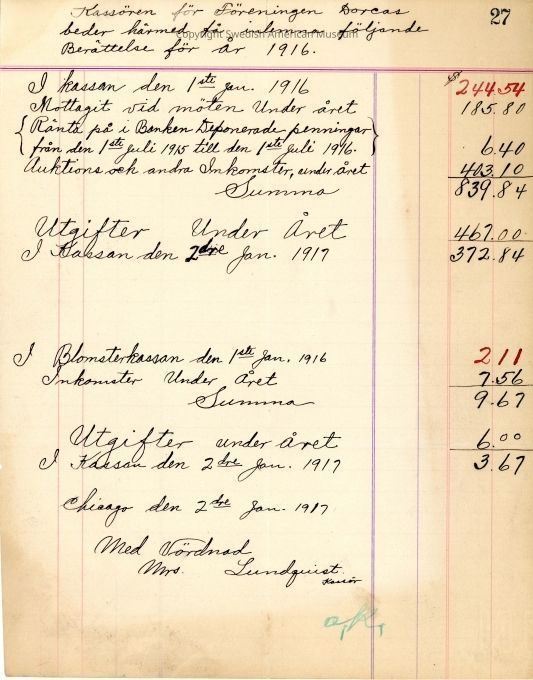 27
Kassören för Föreningen Dorcas
Copyright Swedish American Museum
beder härmed få inlemna följande
Berättelse för År 1916.
I kassan den 1ste Jan. 1916 $ 244.54
Mottagit vid möten Under året 185.80
{ Ränta på i Banken Deponerade penningar }
från den 1ste Juli 1915 till den 1ste Juli 1916. 6.40
Auktions och andra Inkomster, under året 403.10
Summa 839.84
Utgifter Under Året 467.00
I Kassan den 2dre Jan. 1917 372.84
I Blomsterkassan den 1ste Jan. 1916 2 11
Inkomster Under Året 7.56
Summa 9.67
Utgifter under året 6.00
I Kassan den 2dre Jan. 1917 3.67
Chicago den 2dre Jan. 1917
Med Vördnad
Mrs. Lundquist.
Kassör
o.k.